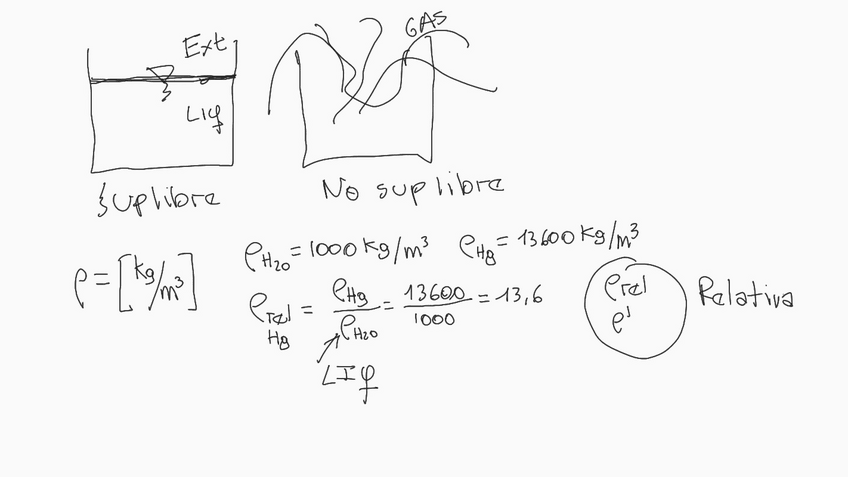 GAS
Ext
Liq
Sup libre
No sup libre
ρ = [kg/m³]
ρH2O = 1000 kg/m³
ρHg = 13600 kg/m³
ρrel Hg = ρHg/ρH2O = 13600/1000 = 13,6
LIq
ρrel
ρ'
Relativa